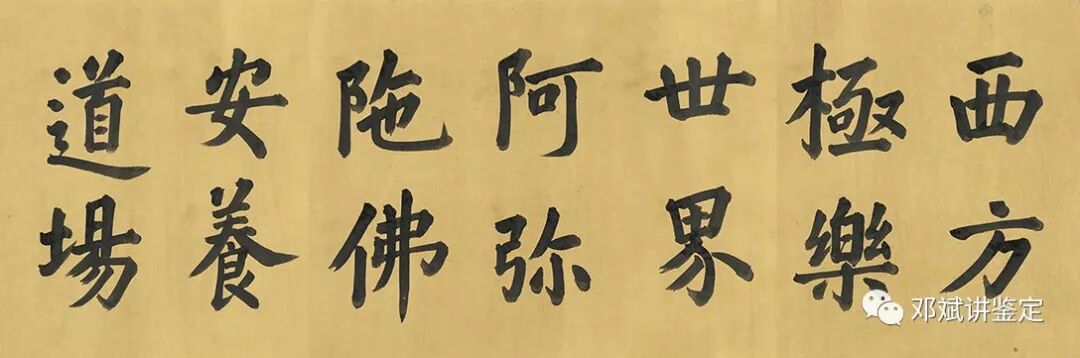 西方
極樂
世界
阿弥
陁佛
安養
道場
邓斌讲鉴定